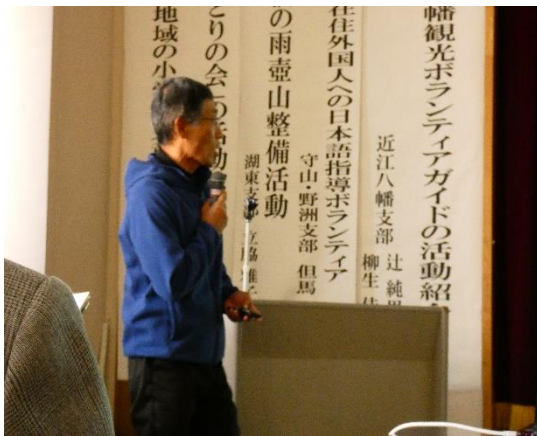 幡観光ボランティアガイドの活動紹
近江八幡支部 辻 純
柳生
在住外国人への日本語指導ボランティア
守山・野洲支部 但馬
の雨壺山整備活動
湖東支部 立脇
とりの会の活動
地域の小